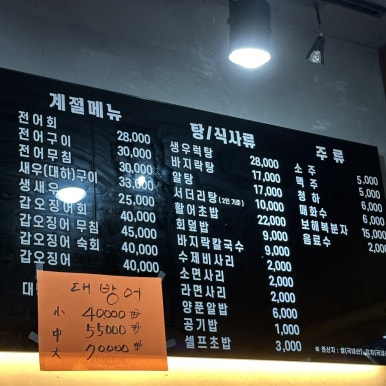 계절메뉴
전어회 28,000
전어구이 30,000
전어무침 30,000
새우(대하)구이 33,000
생새우 25,000
갑오징어회 40,000
갑오징어 무침 45,000
갑오징어 숙회 40,000
갑오징어 40,000
탕/식사류
생우럭탕 28,000
바지락탕 17,000
알탕 17,000
서더리탕 (2인 기준) 10,000
활어초밥 22,000
회덮밥 9,000
바지락칼국수 9,000
수제비사리 2,000
소면사리 2,000
라면사리 2,000
양푼알밥 6,000
공기밥 1,000
셀프초밥 3,000
주 류
소주 5,000
맥주 5,000
청하 6,000
매화수 6,000
보해복분자 15,000
음료수 2,000
※ 원산지 : 쌀(국내산)
대방어
小 40000
中 55000
大 70000